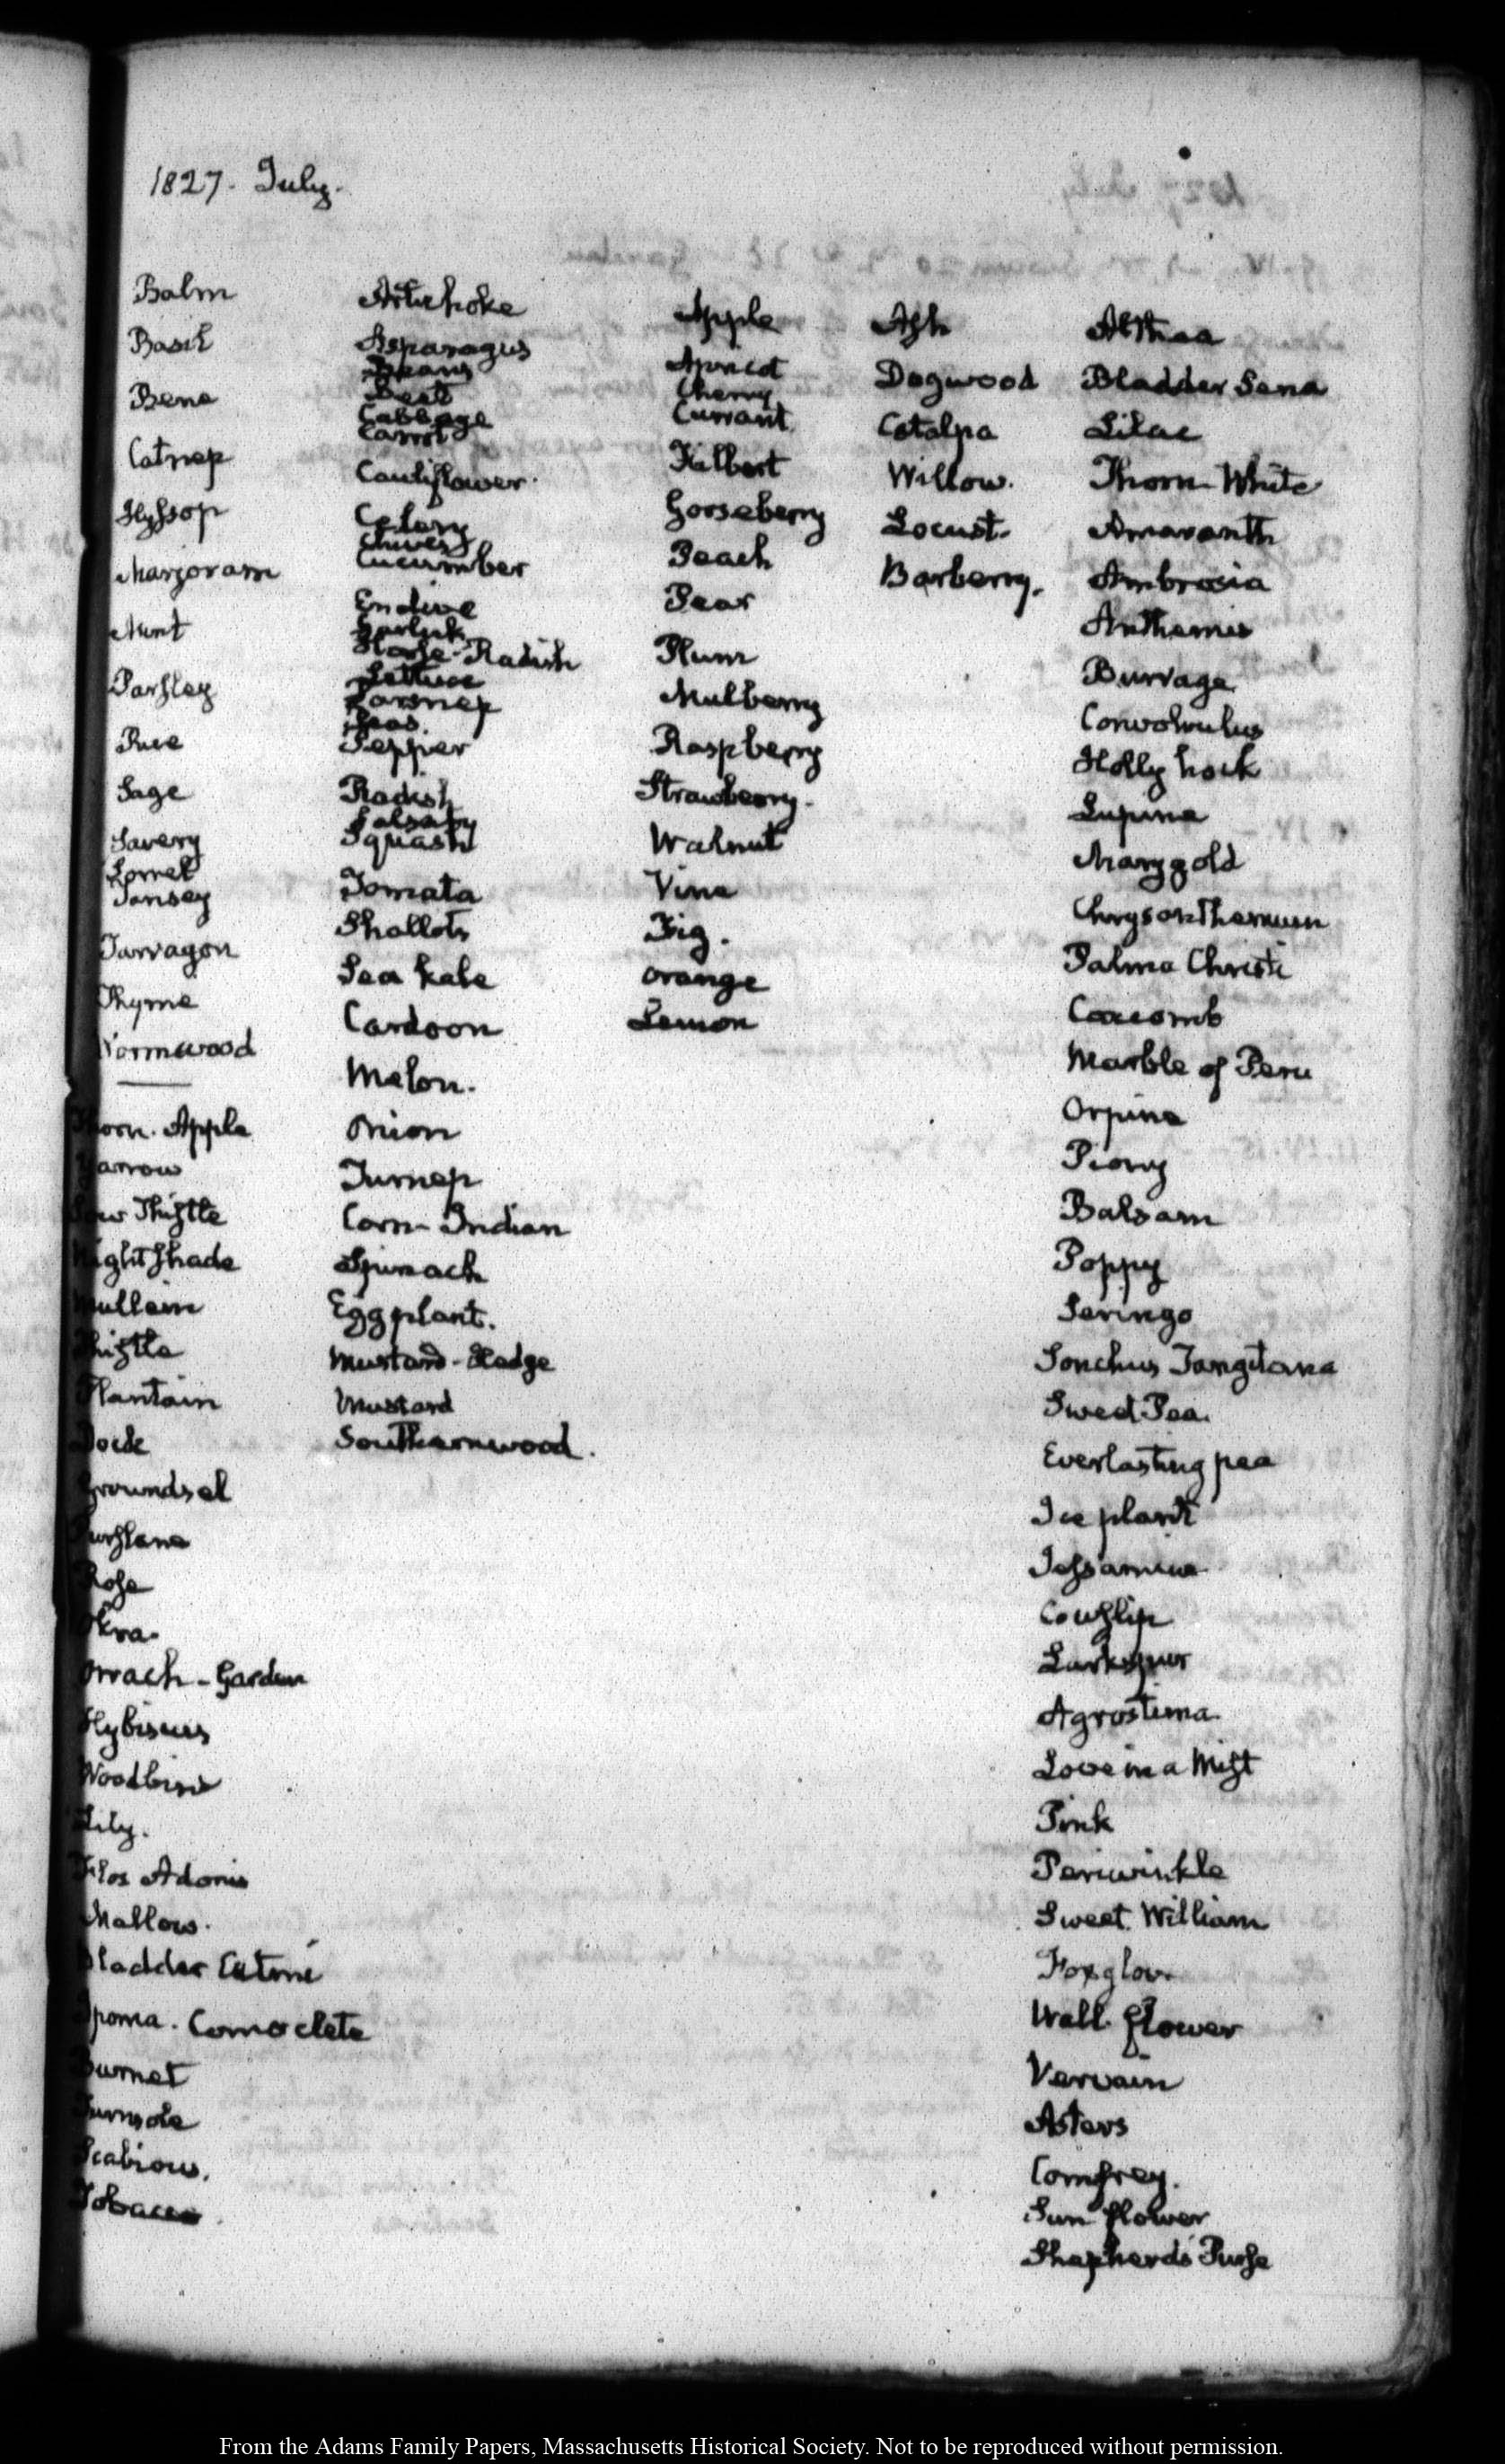 1827. July.
Balm
Basil
Bene
Catnep
Hyssop
Marjoram
Mint
Parsley
Rue
Sage
Savery
Sorrel
Tansey
Tarragon
Thyme
Wormwood
Thorn. Apple
Yarrow
Sow Thistle
Night Shade
Mullein
Thistle
Plantain
Dock
Groundsel
Purslane
Rose
Okra.
Orrach - Garden
Hybiscus
Woodbine
Lily.
Flos Adonis
Mallows.
Bladder
Ipoma.
Burnet
Turnsole
Scabious.
Tobacco.
Artichoke
Asparagus
Beans
Beet
Cabbage
Carrot
Cauliflower.
Celery
Chives
Cucumber
Endive
Garlick
Horse-Radish
Lettuce
Parsnep
Peas.
Pepper
Radish
Salsafy
Squash
Tomata
Shallots
Sea kale
Cardoon
Melon.
Onion
Turnep
Corn- Indian
Spinach
Egg plant.
Mustard - Hedge
Mustard
Southernwood.
Apple
Apricot
Cherry
Currant.
Filbert
Gooseberry
Peach
Pear
Plum
Mulberry
Raspberry
Strawberry.
Walnut
Vine
Fig.
Orange
Lemon
Ash
Dogwood
Catalpa
Willow.
Locust.
Barberry.
Althaea
Bladder Sena
Lilac
Thorn- White
Amaranth
Ambrosia
Anthemis
Burrage
Convolvulus
Holly hock
Lupine
Marygold
Chrysanthemum
Palma Christi
Coxcomb
Marble of Peru
Orpine
Piony
Balsam
Poppy
Seringo
Sonchus Tangitana
Sweet Pea.
Everlasting pea
Ice plant
Jessamine
Cowslip
Larkspur
Agrostima.
Love in a Mist
Pink
Periwinkle
Sweet William
Foxglove
Wall flower
Vervain
Asters
Comfrey.
Sun flower
Shepherds Purse
From the Adams Family Papers, Massachusetts Historical Society. Not to be reproduced without permission.